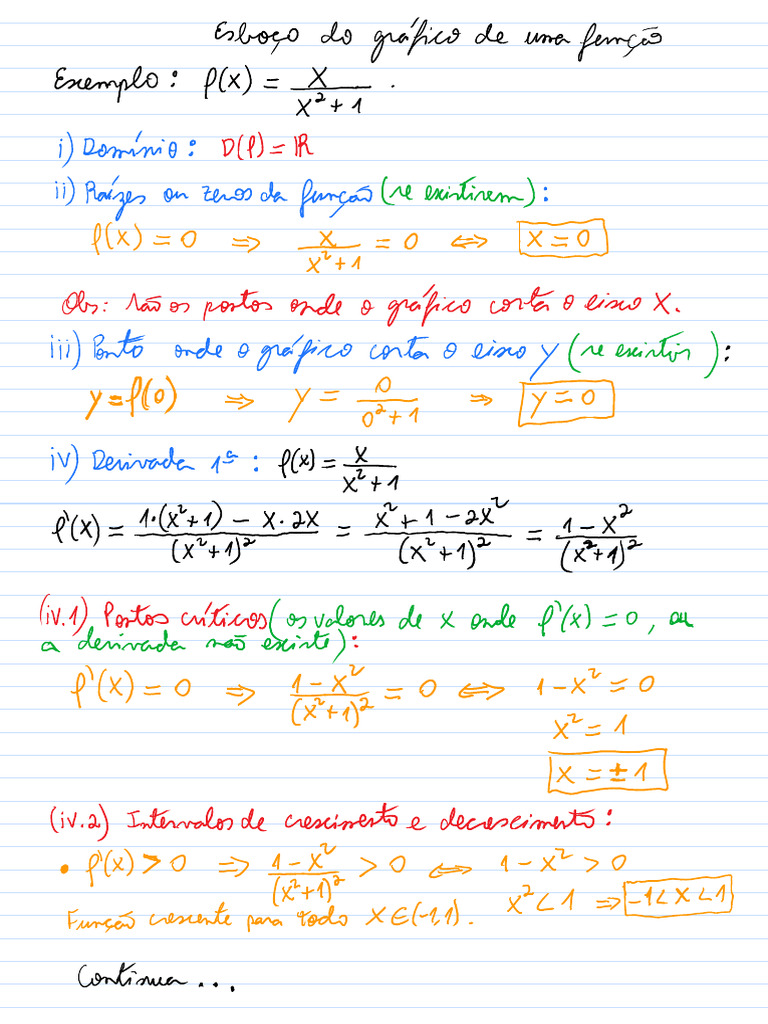 Esboço do gráfico de uma função
Exemplo: f(x) = x/(x²+1) .
i) Domínio: D(f) = ℝ
ii) Raízes ou zeros da função (se existirem):
f(x) = 0 ⇒ x/(x²+1) = 0 ⇔ x = 0
Obs: São os pontos onde o gráfico corta o eixo X.
iii) Ponto onde o gráfico corta o eixo y (se existir):
y = f(0) ⇒ y = 0/(0²+1) ⇒ y = 0
iv) Derivada 1ª: f(x) = x/(x²+1)
f'(x) = (1·(x²+1) − x·2x)/(x²+1)² = (x²+1−2x²)/(x²+1)² = (1−x²)/(x²+1)²
(iv.1) Pontos críticos (os valores de x onde f'(x) = 0, ou
a derivada não existe):
f'(x) = 0 ⇒ (1−x²)/(x²+1)² = 0 ⇔ 1−x² = 0
x² = 1
x = ±1
(iv.2) Intervalos de crescimento e decrescimento:
• f'(x) > 0 ⇒ (1−x²)/(x²+1)² > 0 ⇔ 1−x² > 0
x² < 1 ⇒ -1<x<1
Função crescente para todo x∈(-1,1).
Continua...